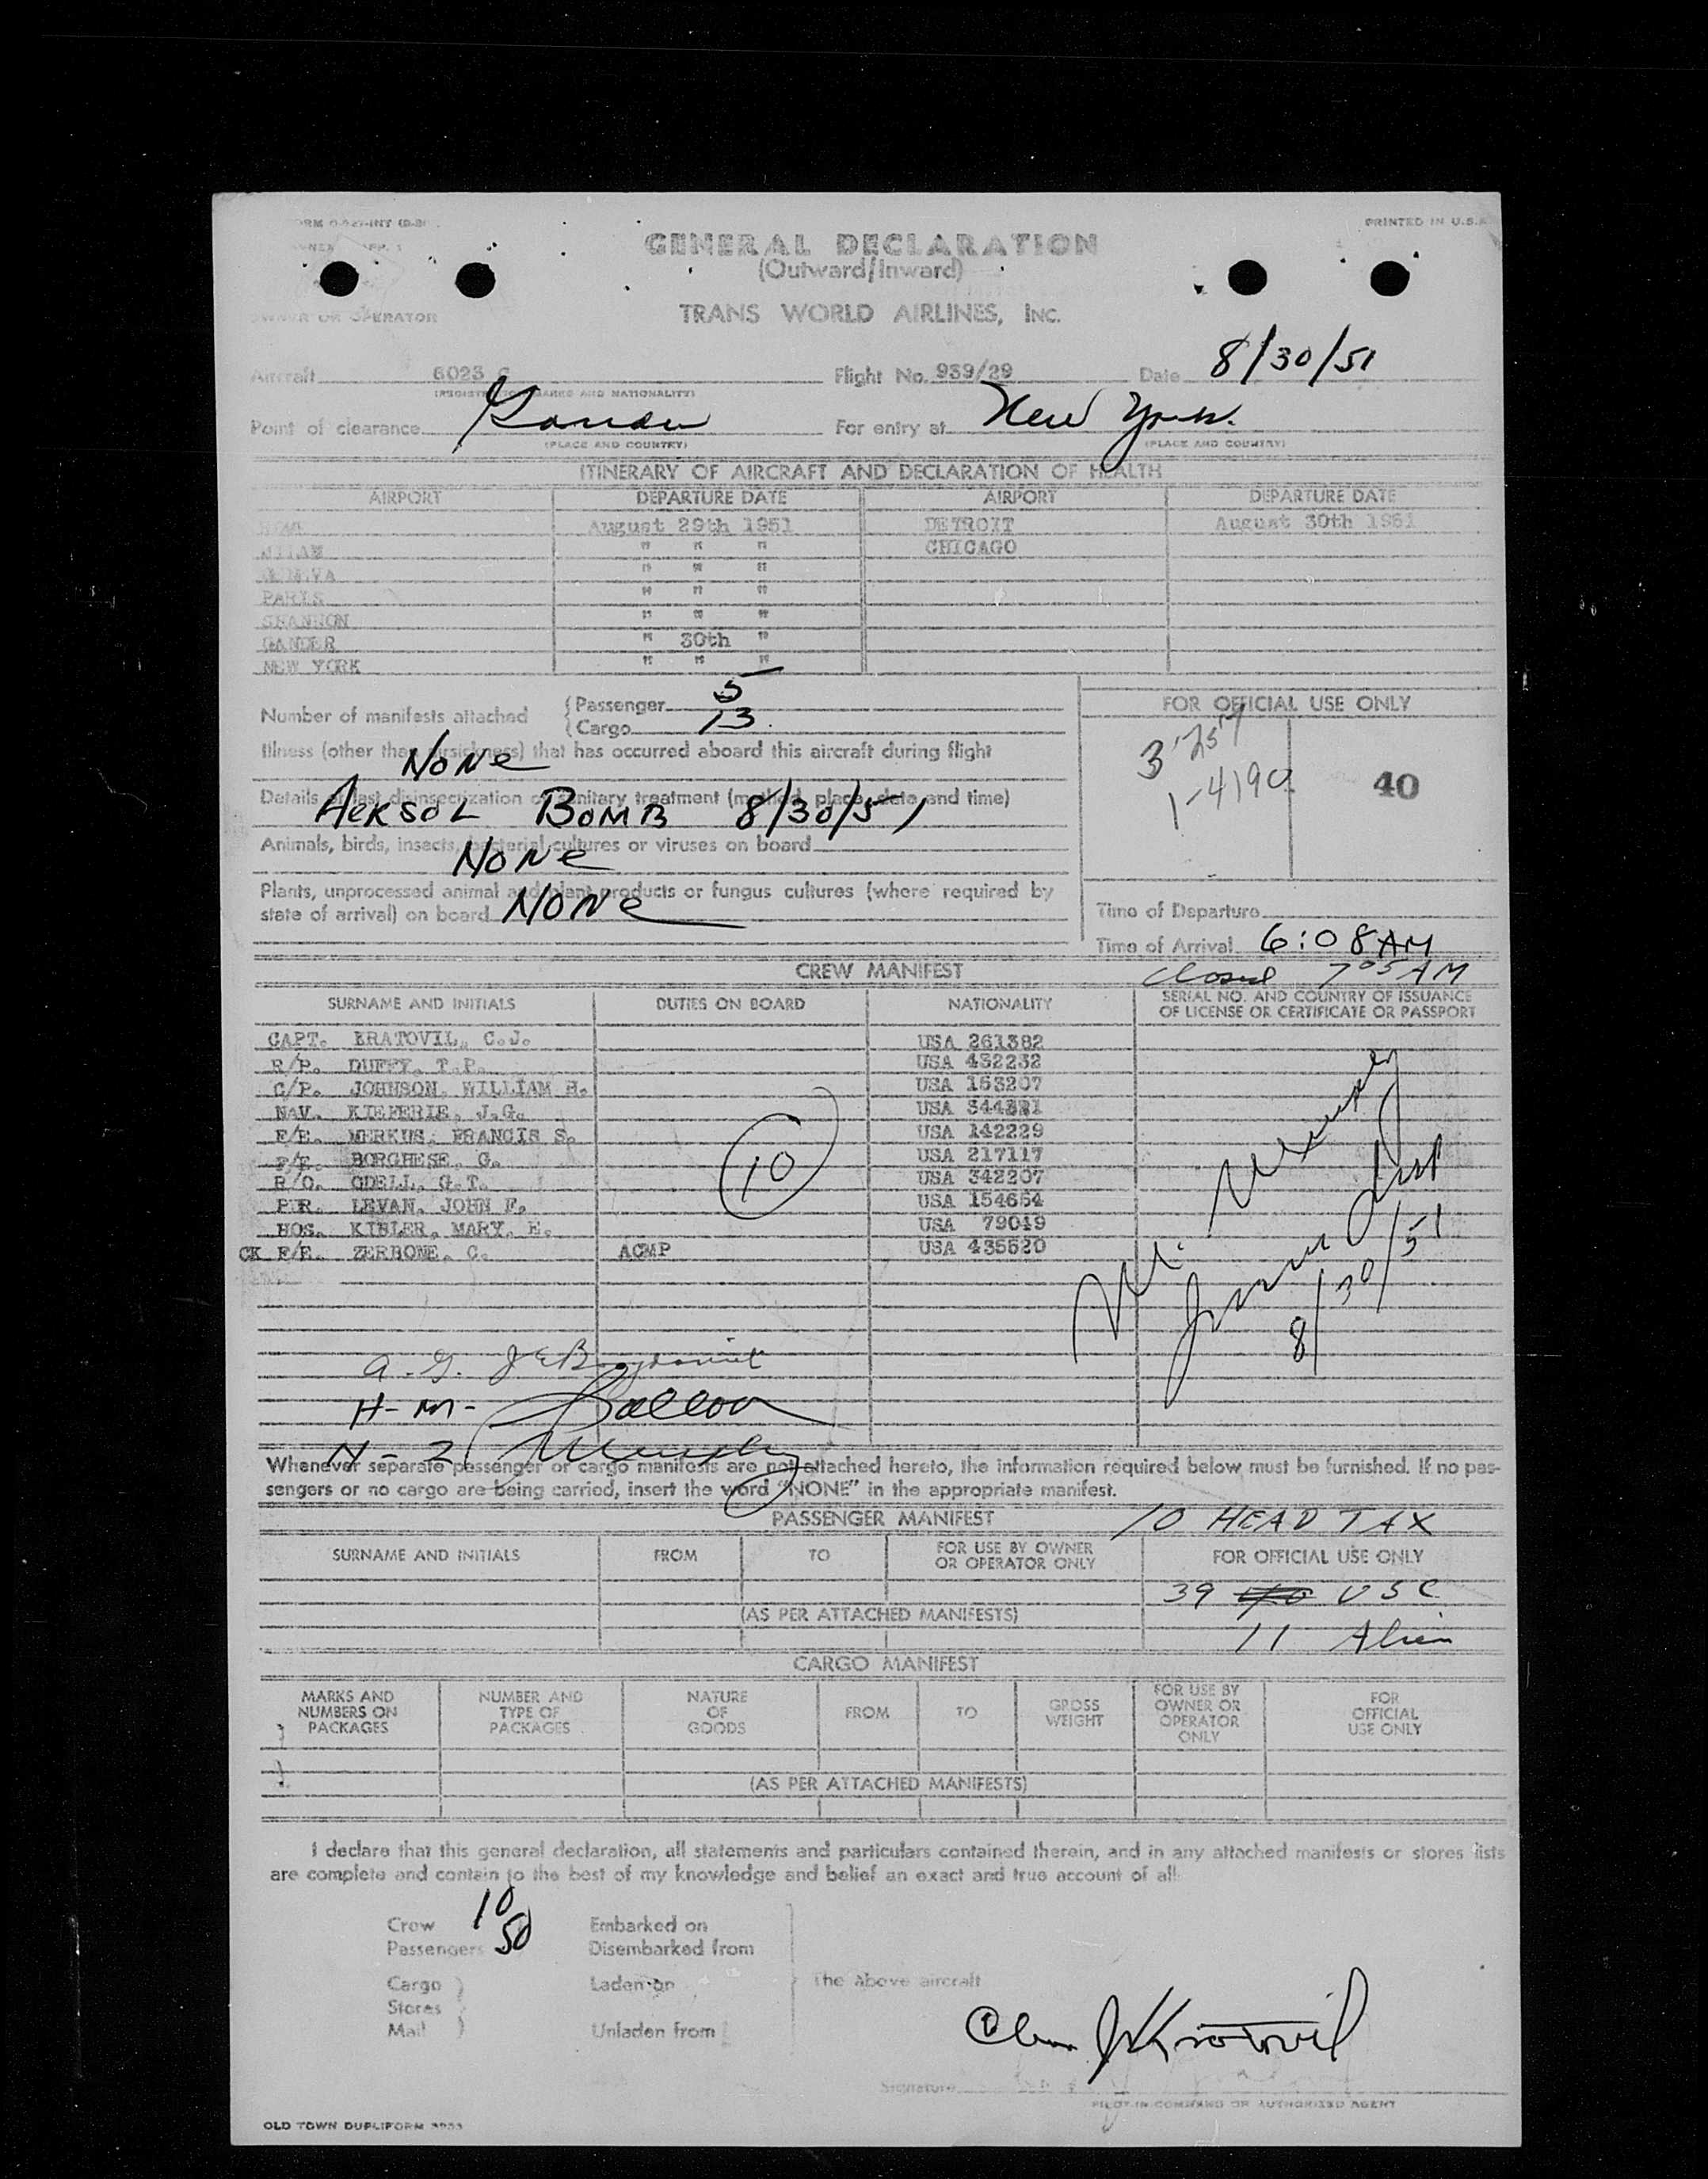 PRINTED IN U.S.A.
GENERAL DECLARATION
(Outward/Inward)
OWNER OR OPERATOR
TRANS WORLD AIRLINES, INC.
Aircraft 6025 C Flight No. 939/29 Date 8/30/51
(REGISTRATION MARKS AND NATIONALITY)
Point of clearance Gander For entry at New York.
(PLACE AND COUNTRY) (PLACE AND COUNTRY)
ITINERARY OF AIRCRAFT AND DECLARATION OF HEALTH
AIRPORT DEPARTURE DATE AIRPORT DEPARTURE DATE
August 29th 1951 DETROIT August 30th 1951
MILAN " " " CHICAGO
GENEVA " " "
PARIS " " "
SHANNON " " "
GANDER " 30th "
NEW YORK " " "
Number of manifests attached { Passenger 5
{ Cargo 13
FOR OFFICIAL USE ONLY
Illness (other than airsickness) that has occurred aboard this aircraft during flight
None
40
1-4190
Details of last disinsectization or sanitary treatment (method, place, date and time)
AERSOL BOMB 8/30/51
Animals, birds, insects, bacterial cultures or viruses on board
None
Plants, unprocessed animal and plant products or fungus cultures (where required by
state of arrival) on board None
Time of Departure
Time of Arrival 6:08 AM
CREW MANIFEST closed 7 05 AM
SURNAME AND INITIALS DUTIES ON BOARD NATIONALITY SERIAL NO. AND COUNTRY OF ISSUANCE
OF LICENSE OR CERTIFICATE OR PASSPORT
CAPT. KRATOVIL, C.J. USA 261382
R/P. DUFFY, T.P. USA 432232
C/P. JOHNSON, WILLIAM H. USA 163207
NAV. KIEFERIE, J.G. USA
F/E. MERKUS, FRANCIS S. USA 142229
P/F. BORGHESE, G. USA 217117
R/O. ODELL, G.T. USA 342207
PUR. LEVAN, JOHN F. USA 154654
HOS. KIBLER, MARY, E. USA 79049
CK F/E. ZERBONE, C. ACMP USA 435520
10
8/30/51
H-M-
Whenever separate passenger or cargo manifests are not attached hereto, the information required below must be furnished. If no pas-
sengers or no cargo are being carried, insert the word "NONE" in the appropriate manifest.
PASSENGER MANIFEST 10 HEAD TAX
SURNAME AND INITIALS FROM TO FOR USE BY OWNER
OR OPERATOR ONLY FOR OFFICIAL USE ONLY
39 USC
(AS PER ATTACHED MANIFESTS)
11 Alien
CARGO MANIFEST
MARKS AND
NUMBERS ON
PACKAGES NUMBER AND
TYPE OF
PACKAGES NATURE
OF
GOODS FROM TO GROSS
WEIGHT FOR USE BY
OWNER OR
OPERATOR
ONLY FOR
OFFICIAL
USE ONLY
(AS PER ATTACHED MANIFESTS)
I declare that this general declaration, all statements and particulars contained therein, and in any attached manifests or stores lists
are complete and contain to the best of my knowledge and belief an exact and true account of all:
Crew 10 Embarked on
Passengers 50 Disembarked from
Cargo } Laden on The above aircraft
Stores }
Mail } Unladen from
Signature
PILOT IN COMMAND OR AUTHORIZED AGENT
OLD TOWN DUPLIFORM